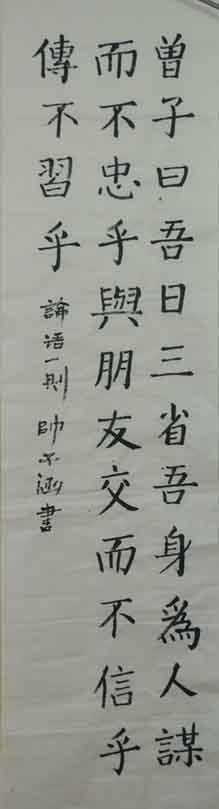 曾子曰吾日三省吾身為人謀
而不忠乎與朋友交而不信乎
傳不習乎
論语一則 帥不涵書